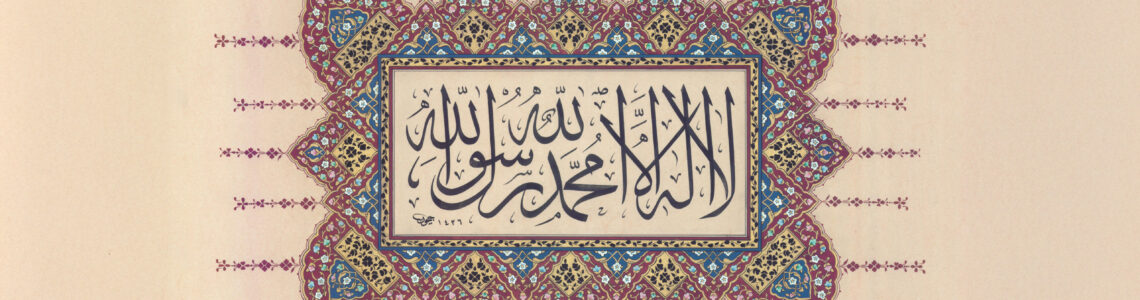 لا اله الا الله محمد رسول الله
١٤٢٦